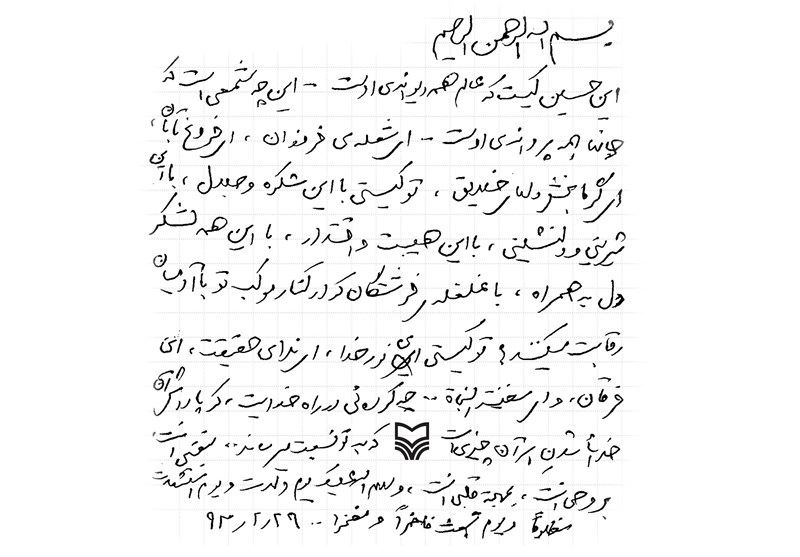 بسم الله الرحمن الرحیم
این حسین کیست که عالم همه دیوانه‌ی اوست - این چه شمعی است که
جانها همه پروانه‌ی اوست - ای شعله‌ی فروزان ، ای فروغ تابان ،
ای گرمابخش دلهای خلایق ، تو کیستی با این شکوه و جلال ، با این
شیرینی و دلنشینی ، با این هیبت و اقتدار ، با این همه لشکر
دل به همراه ، با غلغله‌ی فرشتگان که در کنار موکب تو با آدمیان
رقابت میکنند؟ تو کیستی ای نور خدا ، ای ندای حقیقت ، ای
فرقان ، و ای سفینة النجاة .. چه کرده‌ئی در راه خدایت ، که پاداش آن
خدائی شدن هر آن چیزی است که به تو نسبت میرساند .. بنفسی انت
بروحی انت ، بمهجة قلبی انت ، و سلام الله علیک یوم ولدت و یوم استشهدت
مظلوماً و یوم تبعث فاخراً و مفتخرا .. ۹۳/۲/۲۹